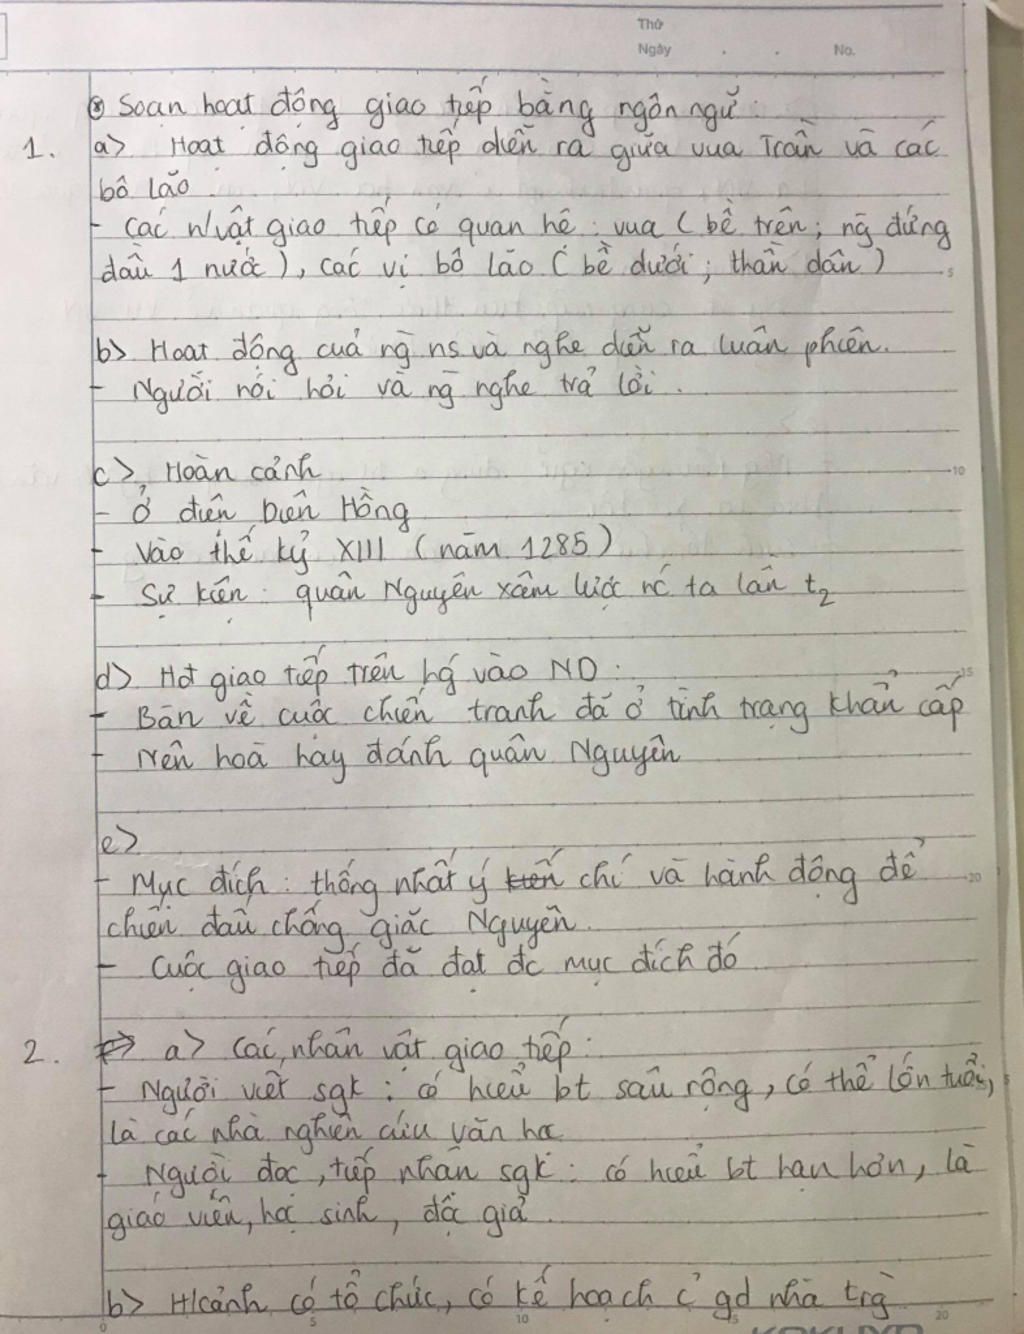 Thứ
Ngày . . No.
⊛ Soạn hoạt động giao tiếp bằng ngôn ngữ:
1. a> Hoạt động giao tiếp diễn ra giữa vua Trần và các
bô lão.
- Các n/vật giao tiếp có quan hệ: vua (bề trên; ng̃ đứng
đầu 1 nước), các vị bô lão (bề dưới; thần dân)
5
b> Hoạt động cuả ng̃ ns và nghe diễn ra luân phiên.
- Người nói hỏi và ng̃ nghe trả lời.
c> Hoàn cảnh
10
- Ở điện Diên Hồng
- Vào thế kỷ XIII (năm 1285)
- Sự kiện: quân Nguyên xâm lược nc ta lần t2
d> Hđ giao tiếp trên hg vào ND:
15
- Bàn về cuộc chiến tranh đã ở tình trạng khẩn cấp
- Nên hoà hay đánh quân Nguyên
e>
- Mục đích: thống nhất ý kiến chí và hành động để
20
chiến đấu chống giặc Nguyên.
- Cuộc giao tiếp đã đạt đc mục đích đó
2. a> Các nhân vật giao tiếp:
- Người viết sgk: có hiểu bt sâu rộng, có thể lớn tuổi,
là các nhà nghiên cứu văn học
- Người đọc, tiếp nhận sgk: có hiểu bt hạn hơn, là
giáo viên, học sinh, độc giả.
b> H/cảnh có tổ chức, có kế hoạch c̉ gd nhà trg̀
0 5 10 15 20